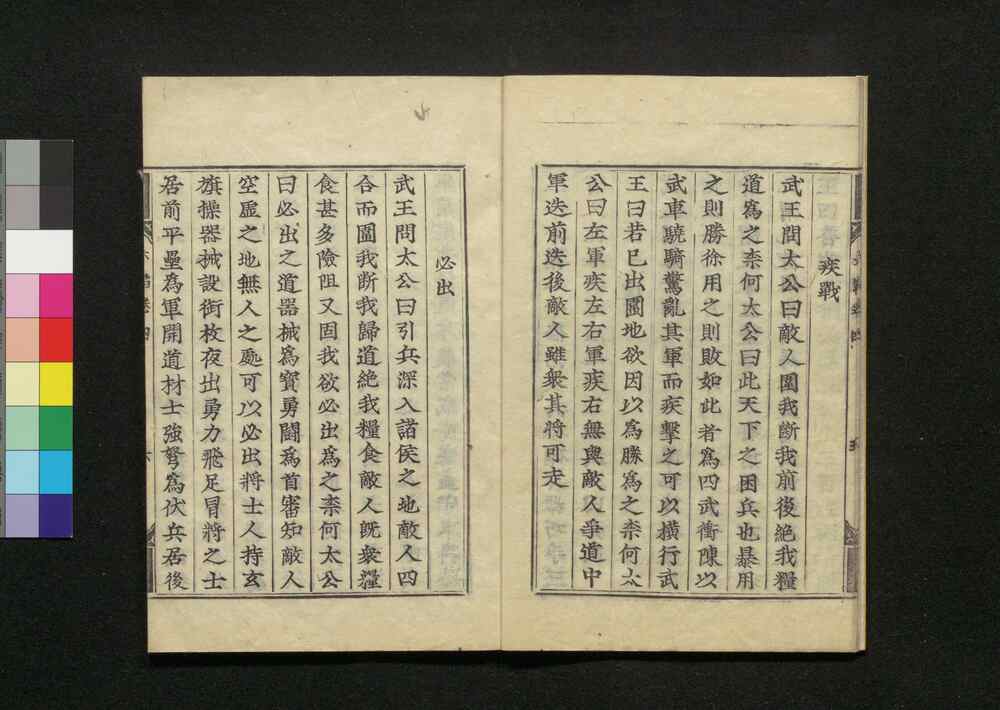 疾戰
武王問太公曰敵人圍我斷我前後絕我糧
道爲之柰何太公曰此天下之困兵也暴用
之則勝徐用之則敗如此者爲四武衝陳以
武車驍騎驚亂其軍而疾擊之可以橫行武
王曰若已出圍地欲因以爲勝爲之柰何太
公曰左軍疾左右軍疾右無與敵人爭道中
軍迭前迭後敵人雖衆其將可走
必出
武王問太公曰引兵深入諸侯之地敵人四
合而圍我斷我歸道絕我糧食敵人旣衆糧
食甚多險阻又固我欲必出爲之柰何太公
曰必出之道器械爲寶勇鬪爲首審知敵人
空虛之地無人之處可以必出將士人持玄
旗操器械設銜枚夜出勇力飛足冒將之士
居前平壘爲軍開道材士強弩爲伏兵居後